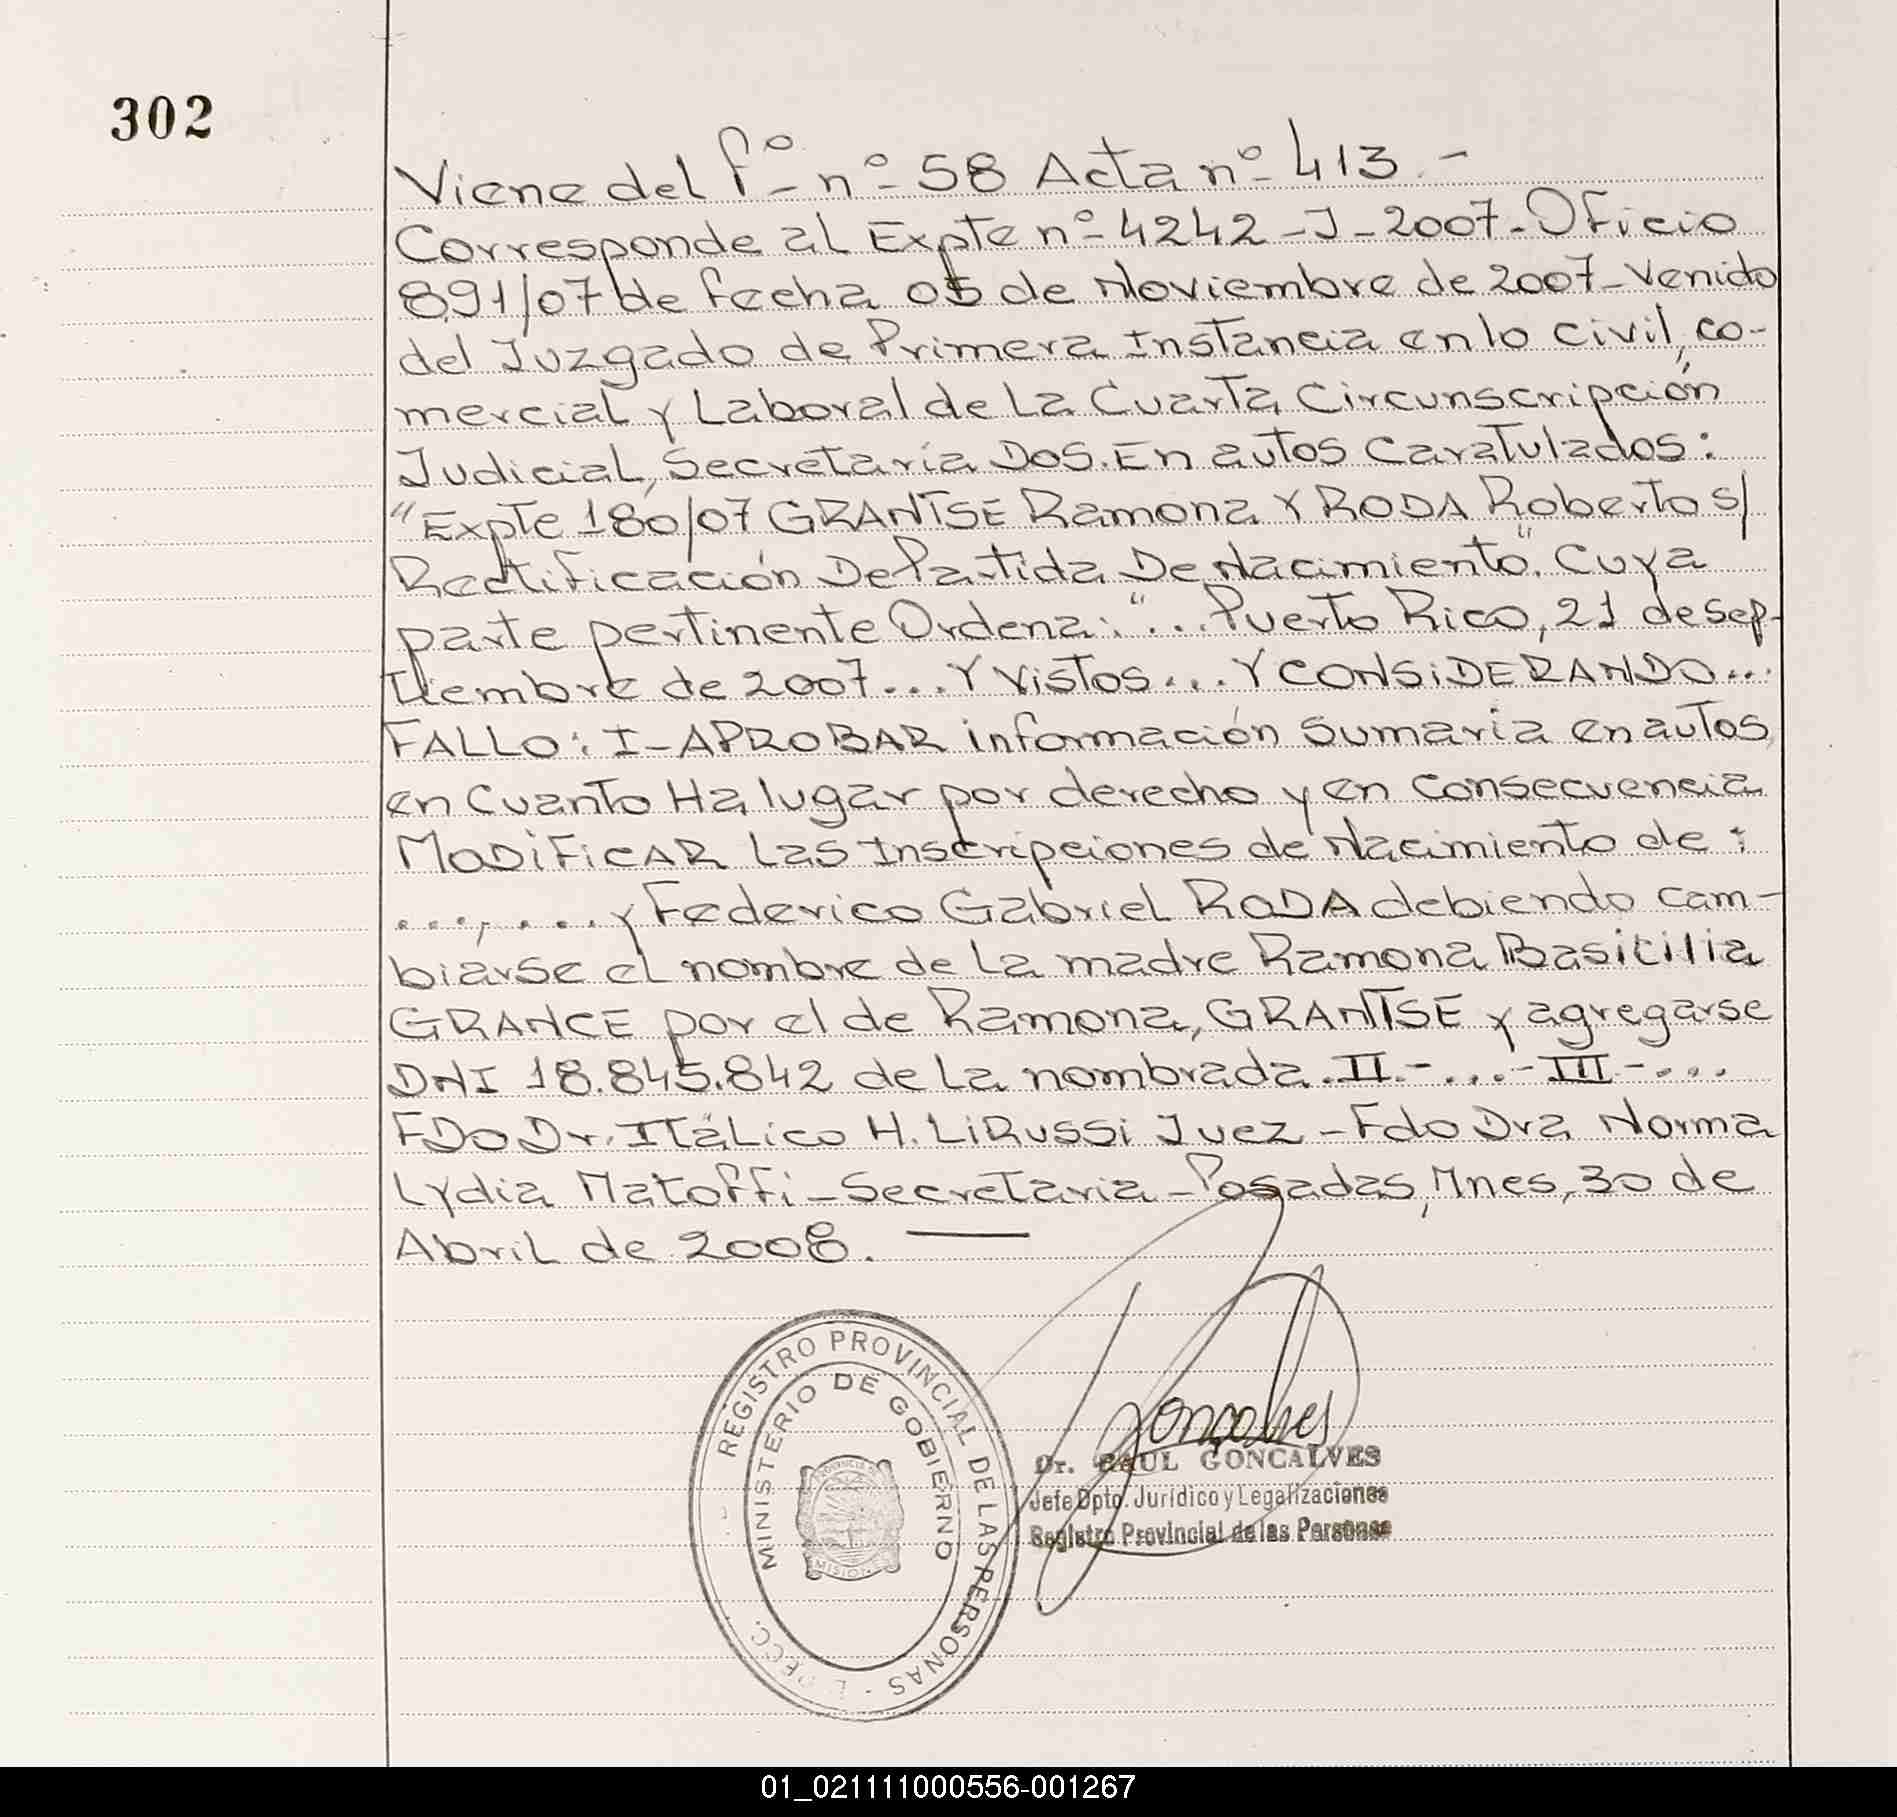 302
Viene del fº nº 58 Acta nº 413.-
Corresponde al Expte nº 4242-J-2007-Oficio
891/07 de fecha 05 de Noviembre de 2007-Venido
del Juzgado de Primera Instancia en lo Civil, co-
mercial y Laboral de La Cuarta Circunscripción
Judicial, Secretaría Dos. En autos Caratulados:
"Expte 180/07 GRANTSE Ramona Y RODA Roberto s/
Rectificación De Partida De Nacimiento". Cuya
parte pertinente Ordena: "...Puerto Rico, 21 de sep-
tiembre de 2007...Y Vistos...Y CONSIDERANDO...
FALLO: I-APROBAR información Sumaria en autos,
en Cuanto Ha lugar por derecho y en Consecuencia
MODIFICAR Las Inscripciones de Nacimiento de:
...,... y Federico Gabriel RODA debiendo cam-
biarse el nombre de La madre Ramona Basicilia
GRANCE por el de Ramona, GRANTSE y agregarse
DNI 18.845.842 de La nombrada. II.-...-III-...
FDO Dr. Itálico H. LiRussi Juez-Fdo Dra Norma
Lydia Matoffi-Secretaria-Posadas, Mnes, 30 de
Abril de 2008.
REGISTRO PROVINCIAL DE LAS PERSONAS
MINISTERIO DE GOBIERNO
PROVINCIA
MISIONES
Goncalves
Dr. RAUL GONCALVES
Jefe Dpto. Jurídico y Legalizaciones
Registro Provincial de las Personas
01_021111000556-001267